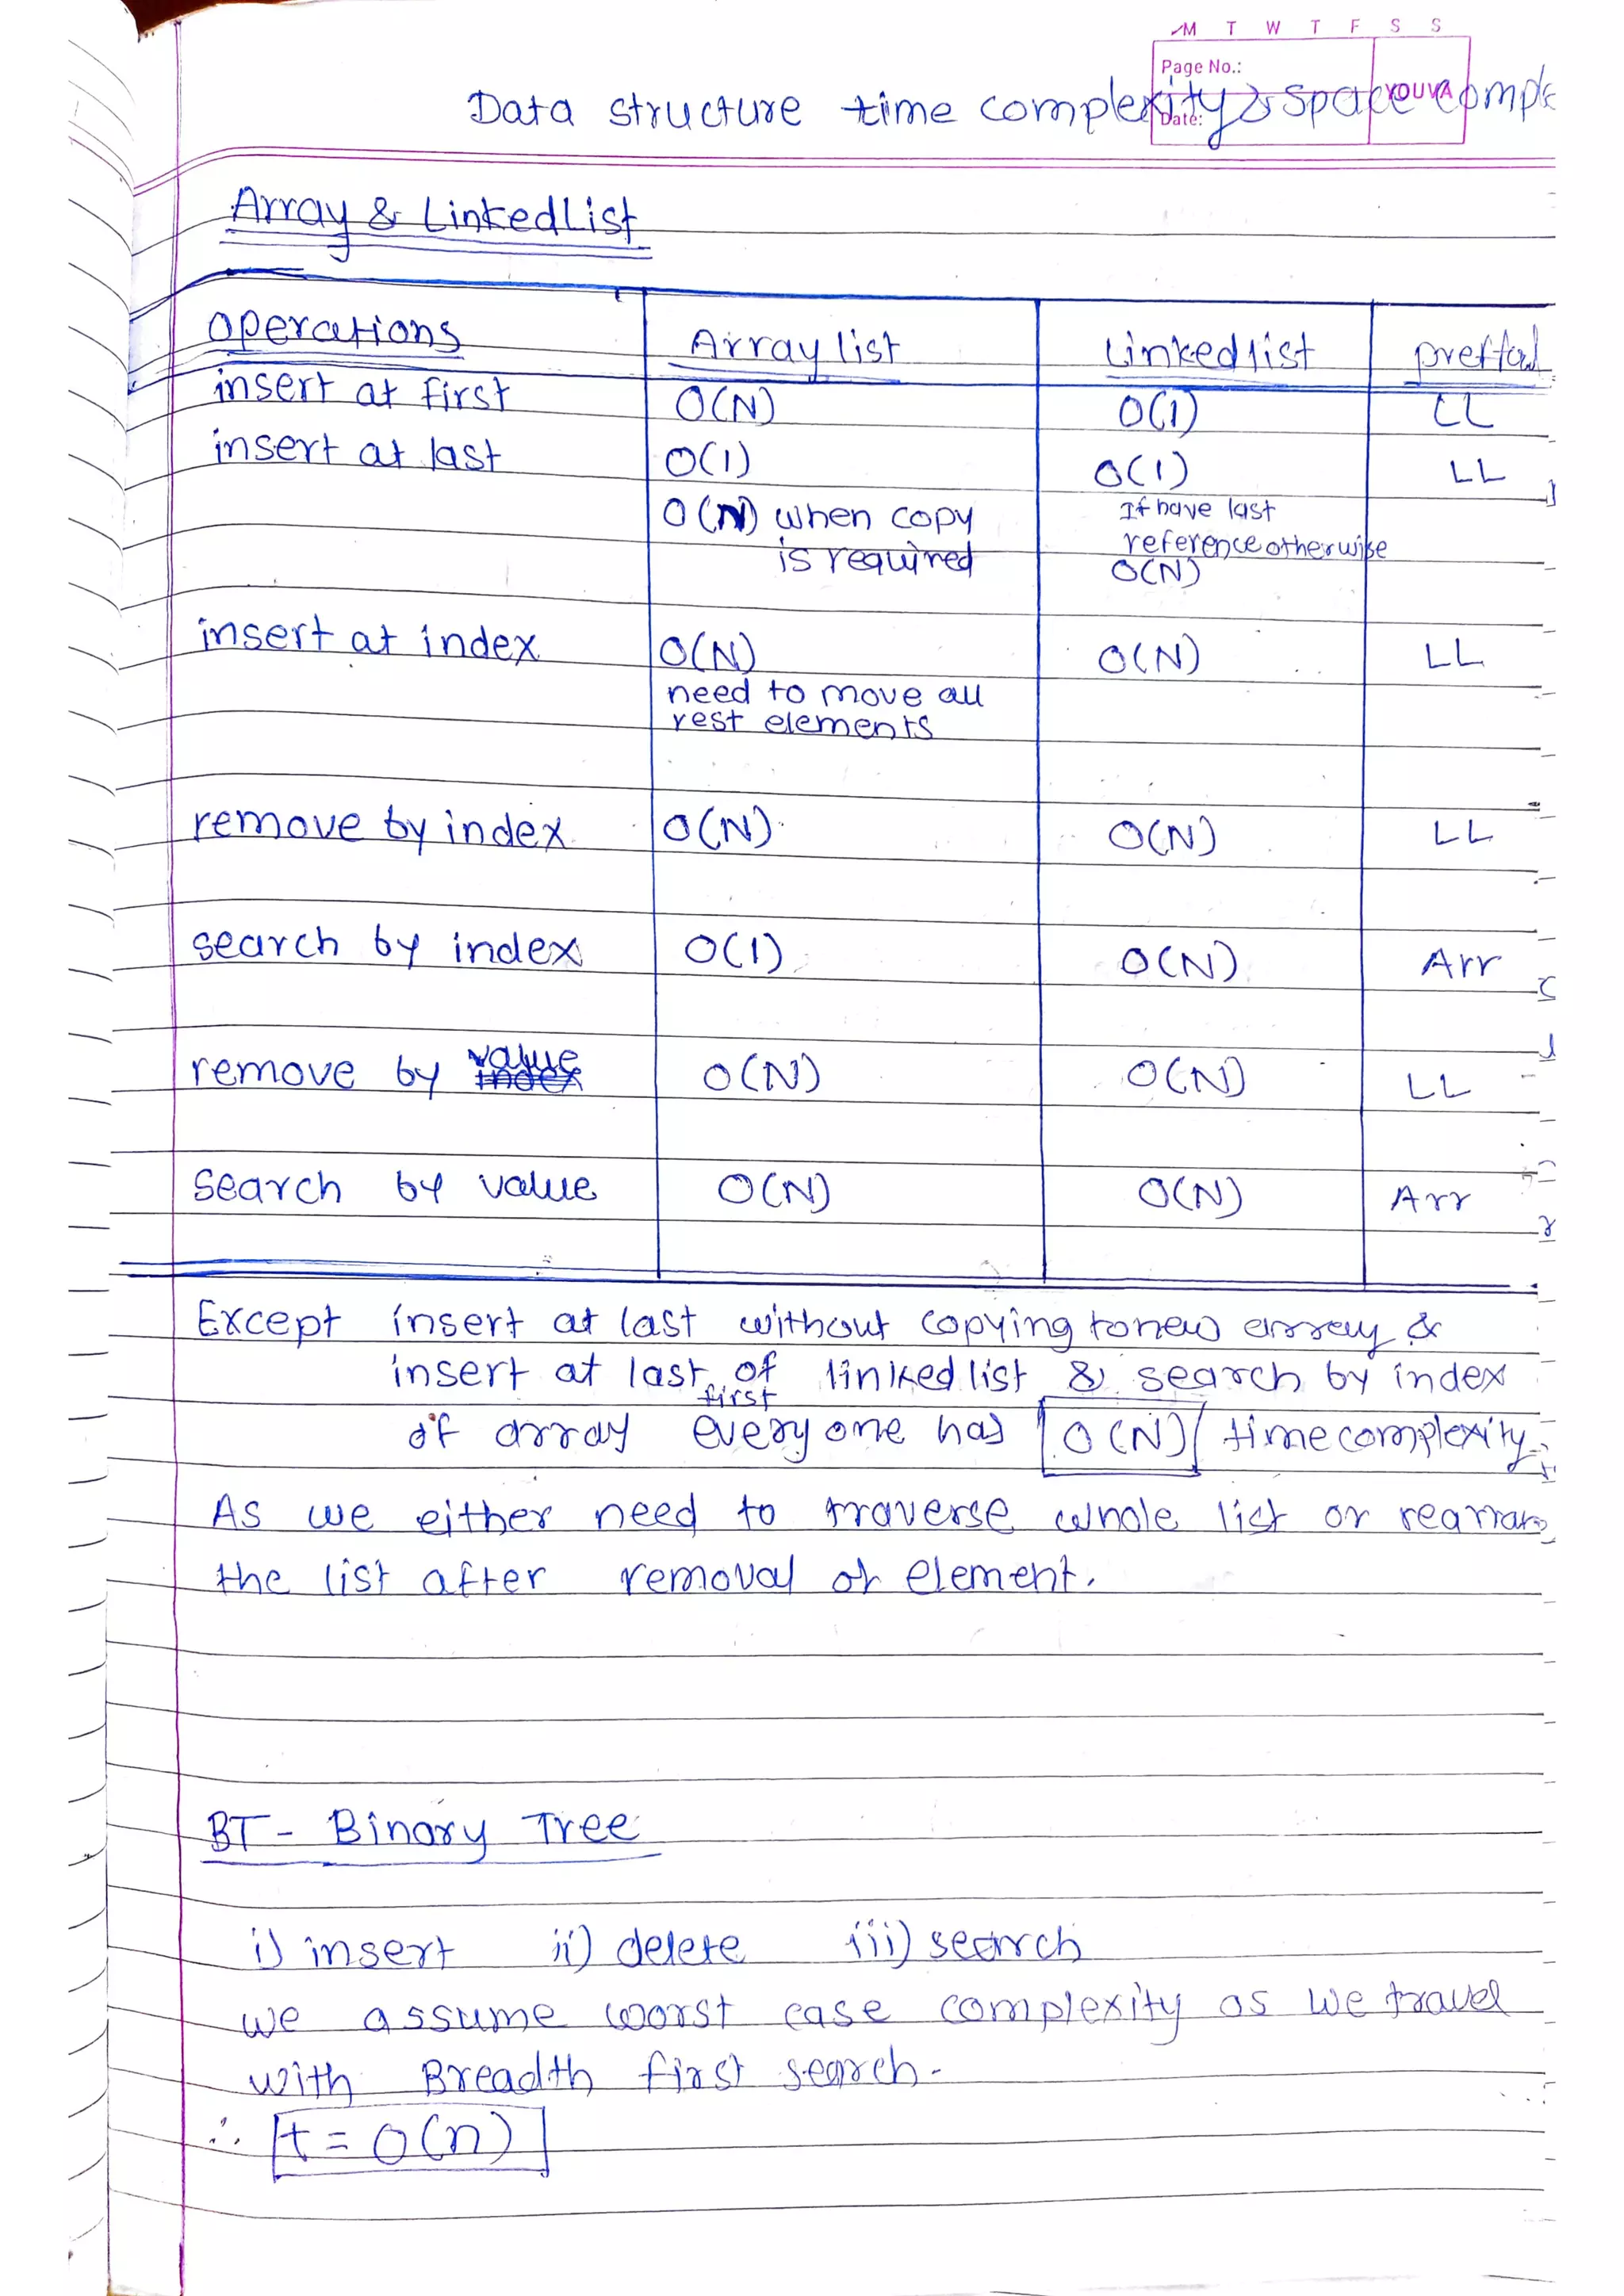 M T W T F S S
Page No.:
Date:
YOUVA
Data structure time complexity & space comple
Array & LinkedList
operations Array list Linkedlist
insert at first O(N) O(1) LL
insert at last O(1) O(1) LL
O(N) when copy is required
If have last reference otherwise O(N)
insert at index O(N) O(N) LL
need to move all
rest elements
remove by index O(N) O(N) LL
search by index O(1) O(N) Arr
remove by value O(N) O(N) LL
search by value O(N) O(N) Arr
Except insert at last without copying to new array &
insert at last, of linked list & search by index
first
of array every one has O(N) time complexity
As we either need to traverse whole list or rearran
the list after removal of element.
BT - Binary Tree
i) insert ii) delete iii) search
we assume worst case complexity as we travel
with Breadth first search.
∴ t = O(n)